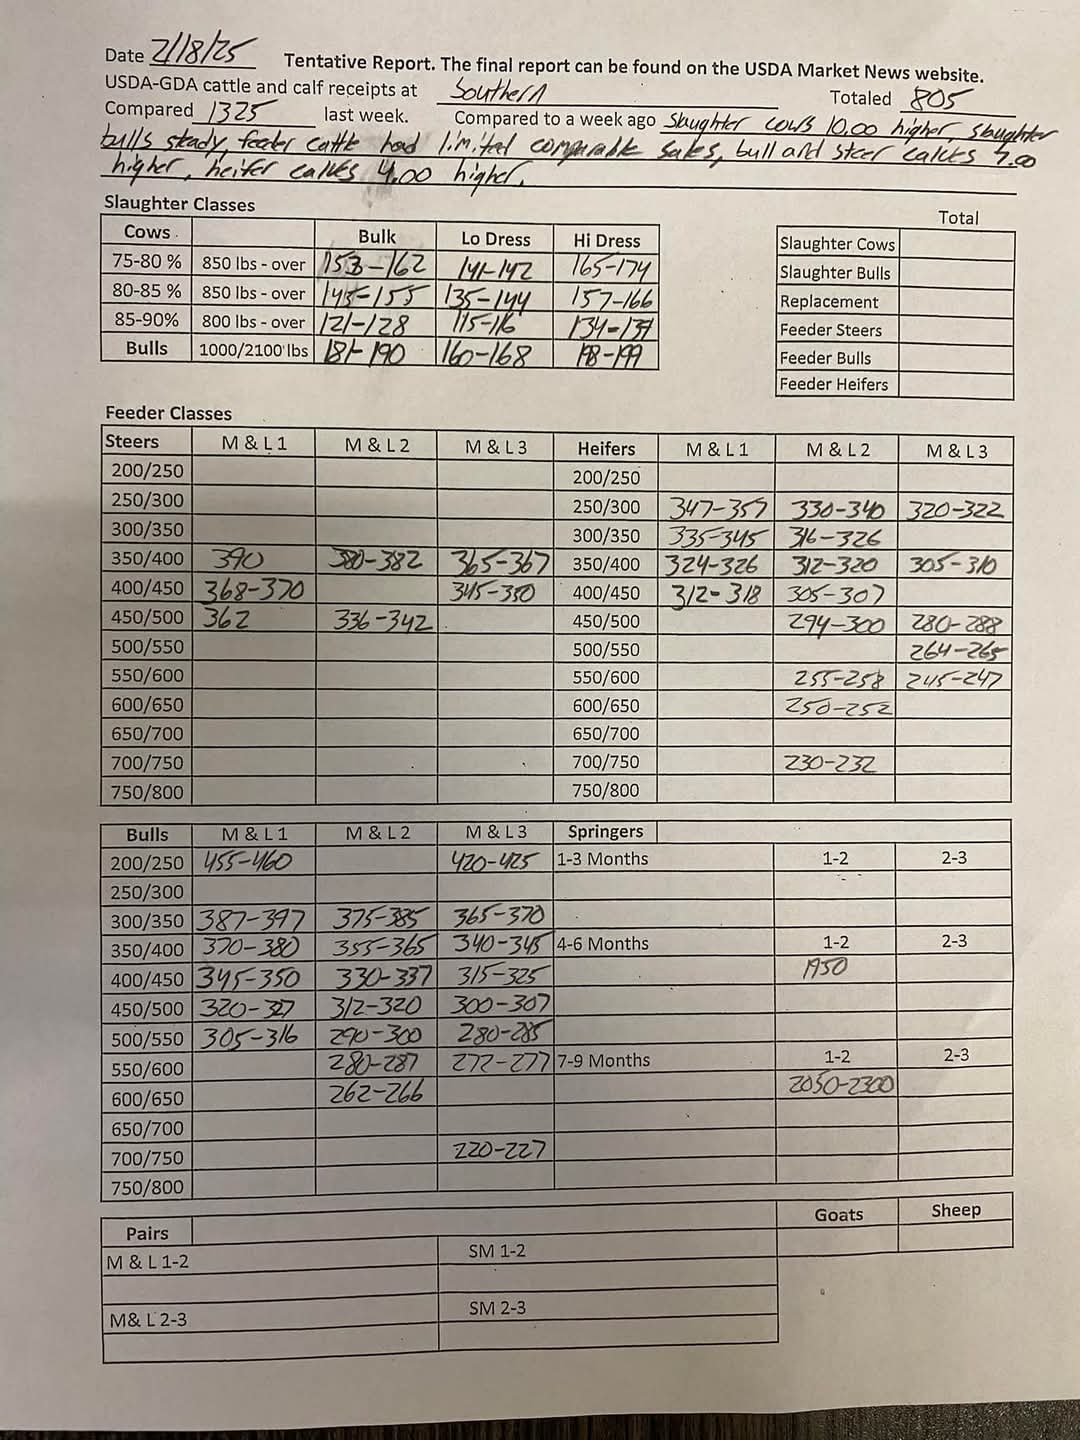 Date 2/18/25 Tentative Report. The final report can be found on the USDA Market News website.
USDA-GDA cattle and calf receipts at Southern Totaled 805
Compared 1325 last week. Compared to a week ago Slaughter cows 10.00 higher, slaughter
bulls steady, feeder cattle had limited comparable sales, bull and steer calves 7.00
higher, heifer calves 4.00 higher.
Slaughter Classes Total
Cows Bulk Lo Dress Hi Dress Slaughter Cows
75-80 % 850 lbs - over 153-162 141-142 165-174 Slaughter Bulls
80-85 % 850 lbs - over 145-155 135-144 157-166 Replacement
85-90% 800 lbs - over 121-128 115-116 134-139 Feeder Steers
Bulls 1000/2100 lbs 181-190 160-168 198-199 Feeder Bulls
Feeder Heifers
Feeder Classes
Steers M & L 1 M & L 2 M & L 3 Heifers M & L 1 M & L 2 M & L 3
200/250 200/250
250/300 250/300 347-357 330-340 320-322
300/350 300/350 335-345 316-326
350/400 390 380-382 365-367 350/400 324-326 312-320 305-310
400/450 368-370 345-350 400/450 312-318 305-307
450/500 362 336-342 450/500 294-300 280-288
500/550 500/550 264-265
550/600 550/600 255-258 245-247
600/650 600/650 250-252
650/700 650/700
700/750 700/750 230-232
750/800 750/800
Bulls M & L 1 M & L 2 M & L 3 Springers
200/250 455-460 420-425 1-3 Months 1-2 2-3
250/300
300/350 387-397 375-385 365-370
350/400 370-380 355-365 340-345 4-6 Months 1-2 2-3
400/450 345-350 330-337 315-325 1950
450/500 320-327 312-320 300-307
500/550 305-316 290-300 280-285
550/600 280-287 272-277 7-9 Months 1-2 2-3
600/650 262-266 2050-2300
650/700
700/750 220-227
750/800
Pairs Goats Sheep
M & L 1-2 SM 1-2
M& L 2-3 SM 2-3